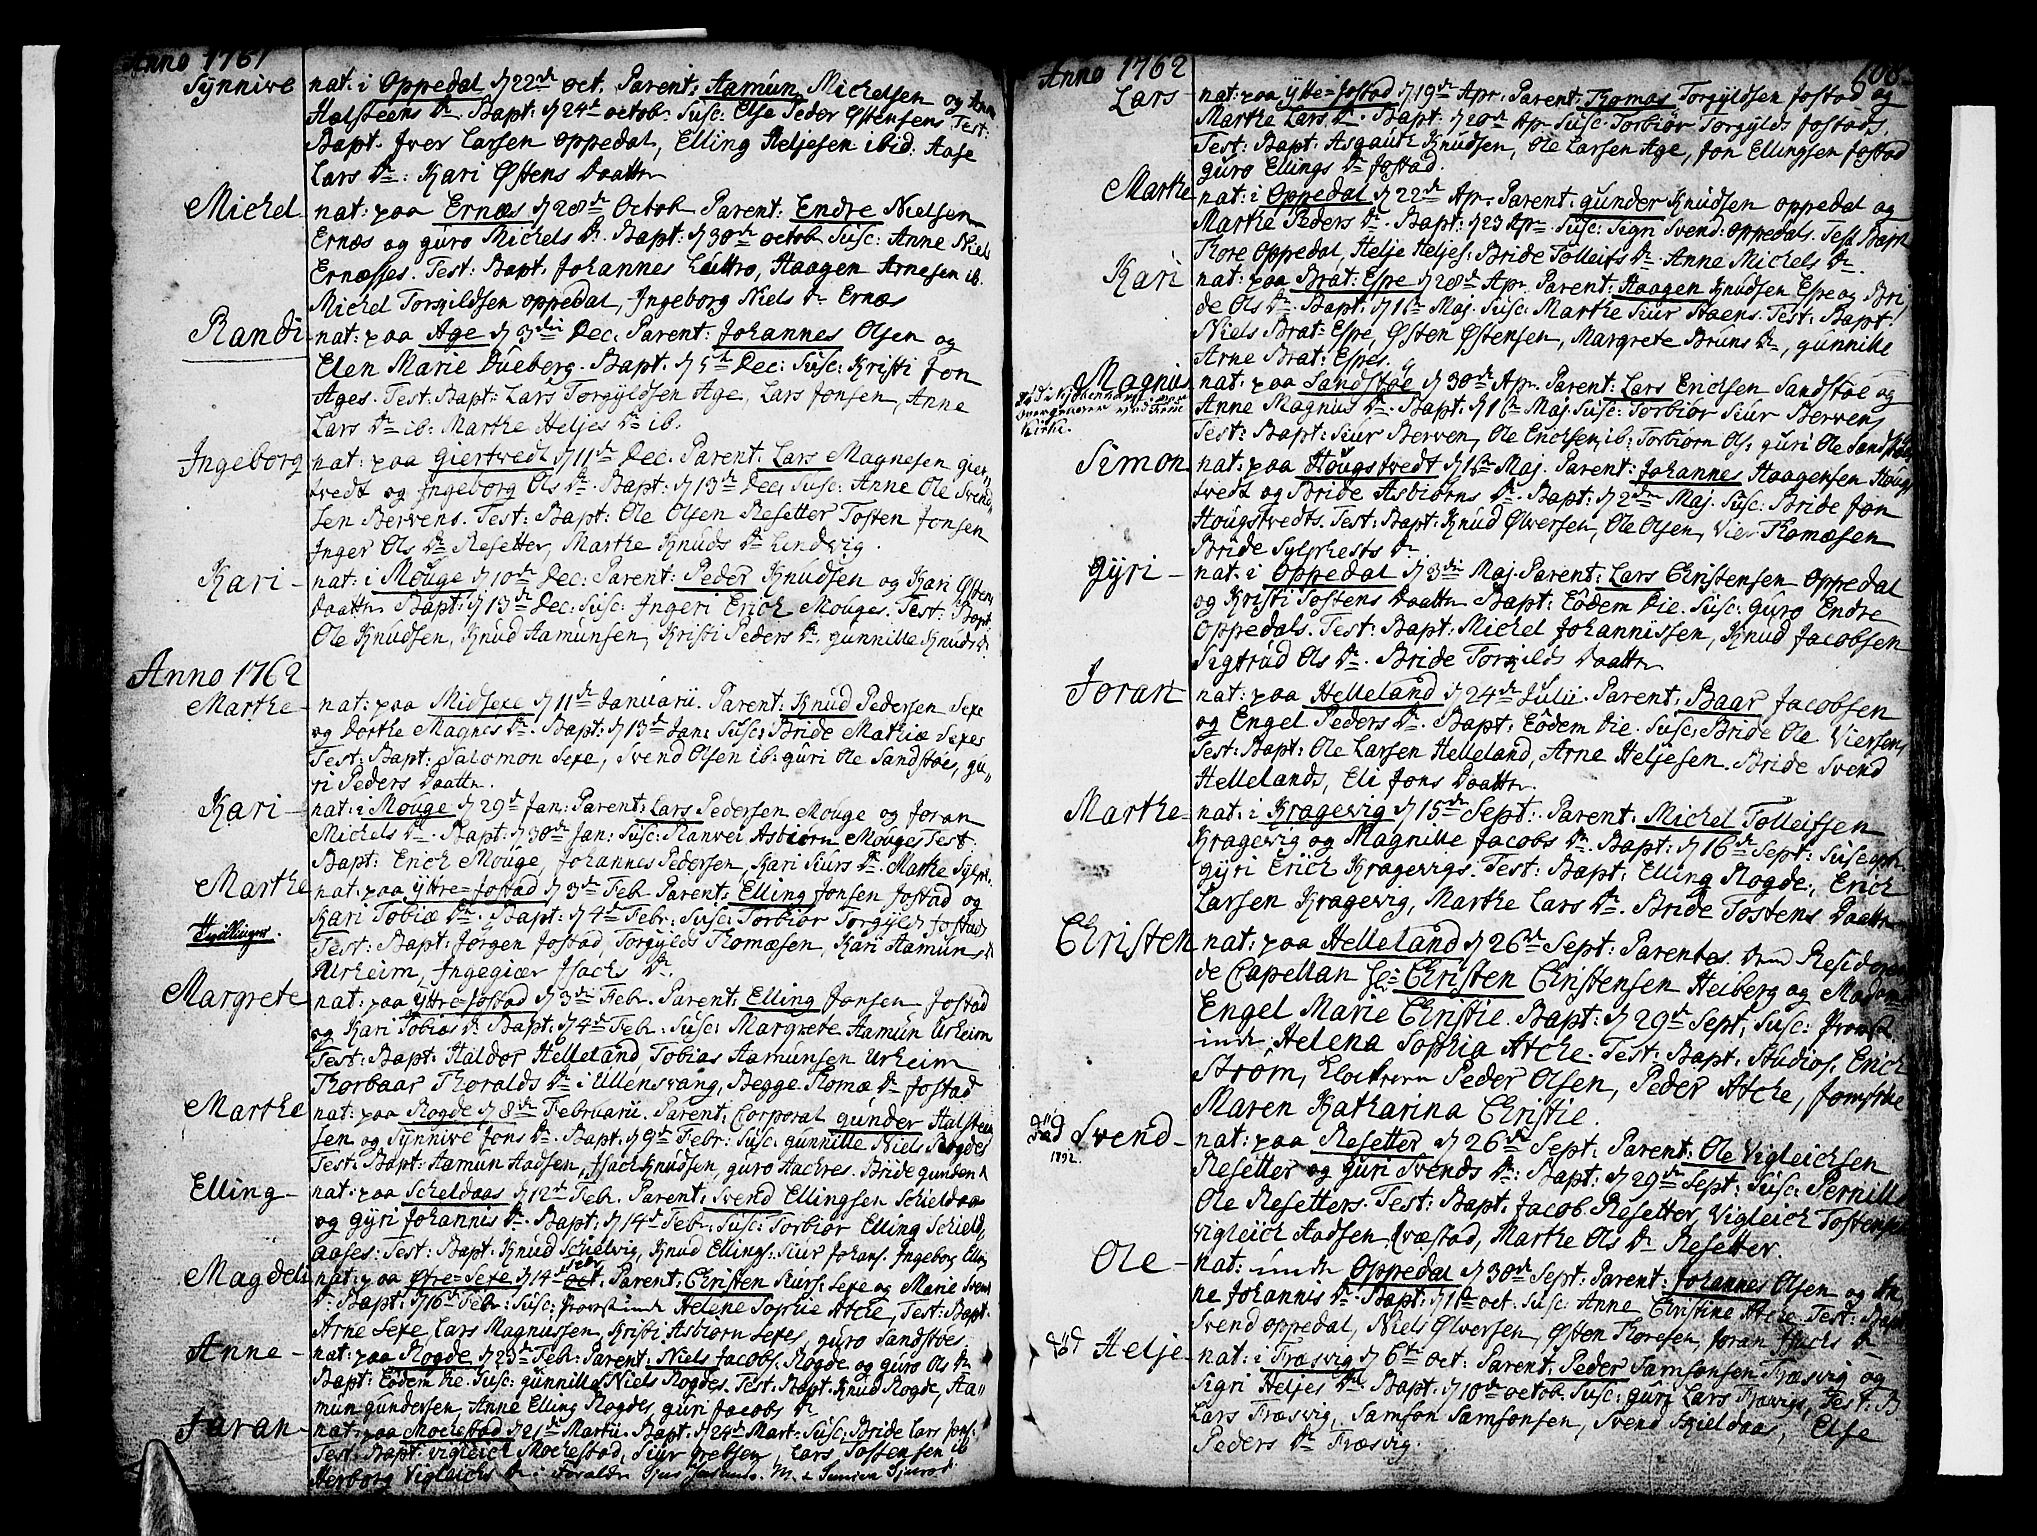 Anno 1761
Synnive nat: i Oppedal d 22de oct. Parent: Aamun Michelsen og Anne
Halsteens Dr. Bapt: d 24de octob. Susc: Else Peder Østensens Test:
Bapt. Iver Larsen oppedal, Elling Heljesen ibid: Aase
Lars Dr: Kari Østens Daatter
Michel nat: paa Ernæs d 28de Octob Parent: Endre Nielsen
Ernæs og guro Michels Dr. Bapt: d 30de octob Susc: Anne Niels
Ernæsses. Test: Bapt. Johannes Huttro, Haagen Arnesen ib.
Michel Torgildsen oppedal, Ingeborg Niels Dr Ernæs
Randi nat: paa Age d 3die Dec: Parent: Johannes Olsen og
Elen Marie Bueberg. Bapt. d 5te Dec: Susc: Kristi Jon
Ages. Test: Bapt: Lars Torgyldsen Age, Lars Jonsen, Anne
Lars Dr ib: Marthe Heljes Dr ib.
Ingeborg nat: paa giertvedt d 11te Dec: Parent: Lars Magnesen gier-
tvedt og Ingeborg Ols Dr. Bapt: d 13de Dec: Susc: Anne Ole Svend-
sen Bervens. Test: Bapt: Ole Olsen Resetter Tosten Jonsen
Inger Ols Dr Resetter, Marthe Knuds Dr Lindvig.
Kari nat: i Mouge d 10de Dec: Parent: Peder Knudsen og Kari Østens
Daatter Bapt: d 13de Dec: Susc: Ingeri Erich Mouges. Test: Bapt:
Ole Knudsen, Knud Aamunsen, Kristi Peders Dr, gunnille Knuds Dr.
Anno 1762
Marthe nat: paa Midsexe d 11te Januarii. Parent: Knud Pedersen Sexe
og Dorthe Magnes Dr. Bapt: d 13de Jan: Susc: Bride Mathiæ Sexes
Test: Bapt: Salomon Sexe, Svend Olsen ib: guri Ole Sandstøes, gu-
ri Peders Daatter.
Kari nat: i Mouge d 29de Jan: Parent: Lars Pedersen Mouge og Joran
Michels Dr. Bapt: d 30de Jan: Susc: Ranvei Asbiørn Mouges Test
Bapt: Erich Mouge, Johannes Pedersen, Kari Siurs Dr. Marthe Sylph.
Marthe nat: paa yttre=Jostad d 3die Feb Parent: Elling Jonsen Jostad og
Tvillinger.
Kari Tobiæ Dr. Bapt: d 4de Febr: Susc: Torbiør Torgylds Jostads
Test: Bapt: Jørgen Jostad, Torgylds Thomæsen, Kari Aamuns D
Urheim, Ingegiær Isachs Dr.
Margrete nat: paa yttre=Jostad d 3die Febr. Parent: Elling Jonsen Jostad
og Kari Tobias Dr Bapt: d 4de Febr: Susc: Margrete Aamun Urheim
Test: Bapt: Haldor Helleland, Tobias Aamunsen Urheim
Thorbaar Thoralds Dr i Ullensvang, Begge Thomæ Dr Jostad
Marthe nat: paa Rogde d 8de Februarii. Parent: Corporal gunder Halsteen
sen og Synnive Jons Dr. Bapt: d 9de Febr: Susc: gunnille Niels Rogdes
Test: Bapt: Aamun Aadsen, Isach Knudsen, guro Aachres. Bride gunders D
Elling nat: paa Scheldaas d 12te Febr. Parent: Svend Ellingsen Schieldaas
og gyri Johannis Dr. Bapt: d 14de Febr: Susc: Torbiør Elling Schield-
aases: Test: Bapt: Knud Schielvig, Knud Ellings: Siur Johans. Ingeborg Ellings
Magdeli nat: paa Øfre=Sexe d 14de oct. Febr. Parent: Christen Siurs: Sexe og Marie Svends
Dr. Bapt: d 16de Febr: Susc: Provstinde Helene Sophie Atche, Test: Bapt:
Arne Sexe, Lars Magnussen, Kristi Asbiørn Sexes, guro Sandstøes.
Anne nat: paa Rogde d 23de Feb: Parent: Niels Jacobs: Rogde og guro Ols Dr
Bapt: Eodem Die. Susc: gunnille Niels Rogdes. Test: Bapt. Knud Rogde, Aa-
mun gundersen, Anne Elling Rogdes, guri Jacobs Dr
Joran nat: paa Mochestad d 21de Martii. Bapt. d 24de Mart: Susc: Bride Lars Jons:
Test: Bapt: Vigleich Mochestad, Siur Lars Tostensen ib
Herborg Vigleichs Dr.
Anno 1762
Lars nat: paa ytte=Jostad d 19de Apr. Parent: Thomas Torgyldsen Jostad og
Marthe Lars Dr. Bapt: d 20de Apr Susc: Torbiør Torgylds Jostads
Test: Bapt: Asgaut Knudsen, Ole Larsen Age, Jon Ellingsen Jostad
guro Ellings Dr Jostad.
Marthe nat: i Oppedal d 22de Apr. Parent: gunder Knudsen oppedal og
Marthe Peders Dr. Bapt: d 23 Apr Susc: Sigri Svend: oppedals. Test Bapt
Thore Oppedal, Helje Heljes: Bride Tolleifs Dr. Anne Michels Dr.
Kari nat: paa Brat: Espe d 28de Apr. Parent: Haagen Knudsen Espe og Bri
de Ols Dr. Bapt: d 16de Maj. Susc: Marthe Siur Staens. Test: Bapt:
Niels Brat=Espe, Østen Østensen, Margrete Bruns Dr, gunnille
Arne Brat: Espes.
Magnus nat: paa Sandstøe d 30de Apr. Parent: Lars Erichsen Sandstøe og
Anne Magnus Dr. Bapt: d 16de Maj. Susc: Torbiør Siur Bervens
Test: Bapt: Siur Berven, Ole Erichsen, ib: Torbiørn Ols: guri Ole Sandstøes
Simon nat: paa Hougstvedt d 1ste Maj. Parent: Johannes Haagensen Houg-
tvedt og Bride Asbiørns Dr. Bapt: d 2den Maj. Susc: Bride Jon
Hougstvedts. Test: Bapt: Knud Ølversen, Ole Olsen, Vier Thomæsen
Bride Sylphests Dr
Gyri nat. i Oppedal d 3die Maj. Parent: Lars Christensen oppedal
og Kristi Tostens Daatter Bapt: Eodem Die. Susc: Guro Endre
Oppedals. Test: Bapt: Michel Johannissen, Knud Jacobsen
Sigtrud Ols Dr. Bride Torgilds Daatter
Joran nat: paa Helleland d 24de Julii. Parent: Baar Jacobsen
og Engel Peders Dr. Bapt: Eodem Die. Susc: Bride Ole Viersens
Test: Bapt: Ole Larsen Helleland, Arne Heljesen. Bride Svend
Hellelands, Eli Jons Daatter.
Marthe nat: i Kragevig d 15de Sept: Parent: Michel Tolleifsen
Kragevig og Magnille Jacobs Dr. Bapt: d 16de Sept: Suscept:
gyri Erich Kragevigs. Test: Bapt: Elling Rogde, Erich
Larsen Kragevig, Marthe Lars Dr. Bride Tostens Daatter
Christen nat: paa Helleland d 26de Sept: Parentes. Residerende
Capellan Christen Christensen Heiberg og Madame
Engel Marie Christie. Bapt: d 29de Sept. Susc: Provst-
inde Helena Sophia Atche. Test: Bapt. Studios. Erich
Strøm, Peder Olsen, Peder Atche, Jomfrue
Maren Katharina Christie.
død
1832.
Svend nat: paa Resetter d 26de Sept: Parent: Ole Vigleichsen
Resetter og guri Svends Dr: Bapt: d 29de Sept: Susc: Pernille
Ole Resetters. Test: Bapt. Jacob Resetter, Vigleich Tostensen
Vigleich Aadsen, Qvæstad, Marthe Ols Dr Resetter.
Ole nat: Oppedal d 30de Sept: Parent: Johannes Olsen og An-
ne Johannis Dr. Bapt: d 1ste oct. Susc: Anne Christine Atche Test: Bapt
Svend oppedal, Niels Ølversen, Østen Thoresen, Joran Isachs Dr
død
Helje nat: i Træsvig d 6te oct: Parent: Peder Samsonsen Træsvig og
Sigri Heljes Dr. Bapt. d 10de octob Susc: guri Lars Træsvigs, Test: B
Lars Træsvig, Samson Samsonsen, Svend Skieldaas, Else
Peders Dr Træsvig.